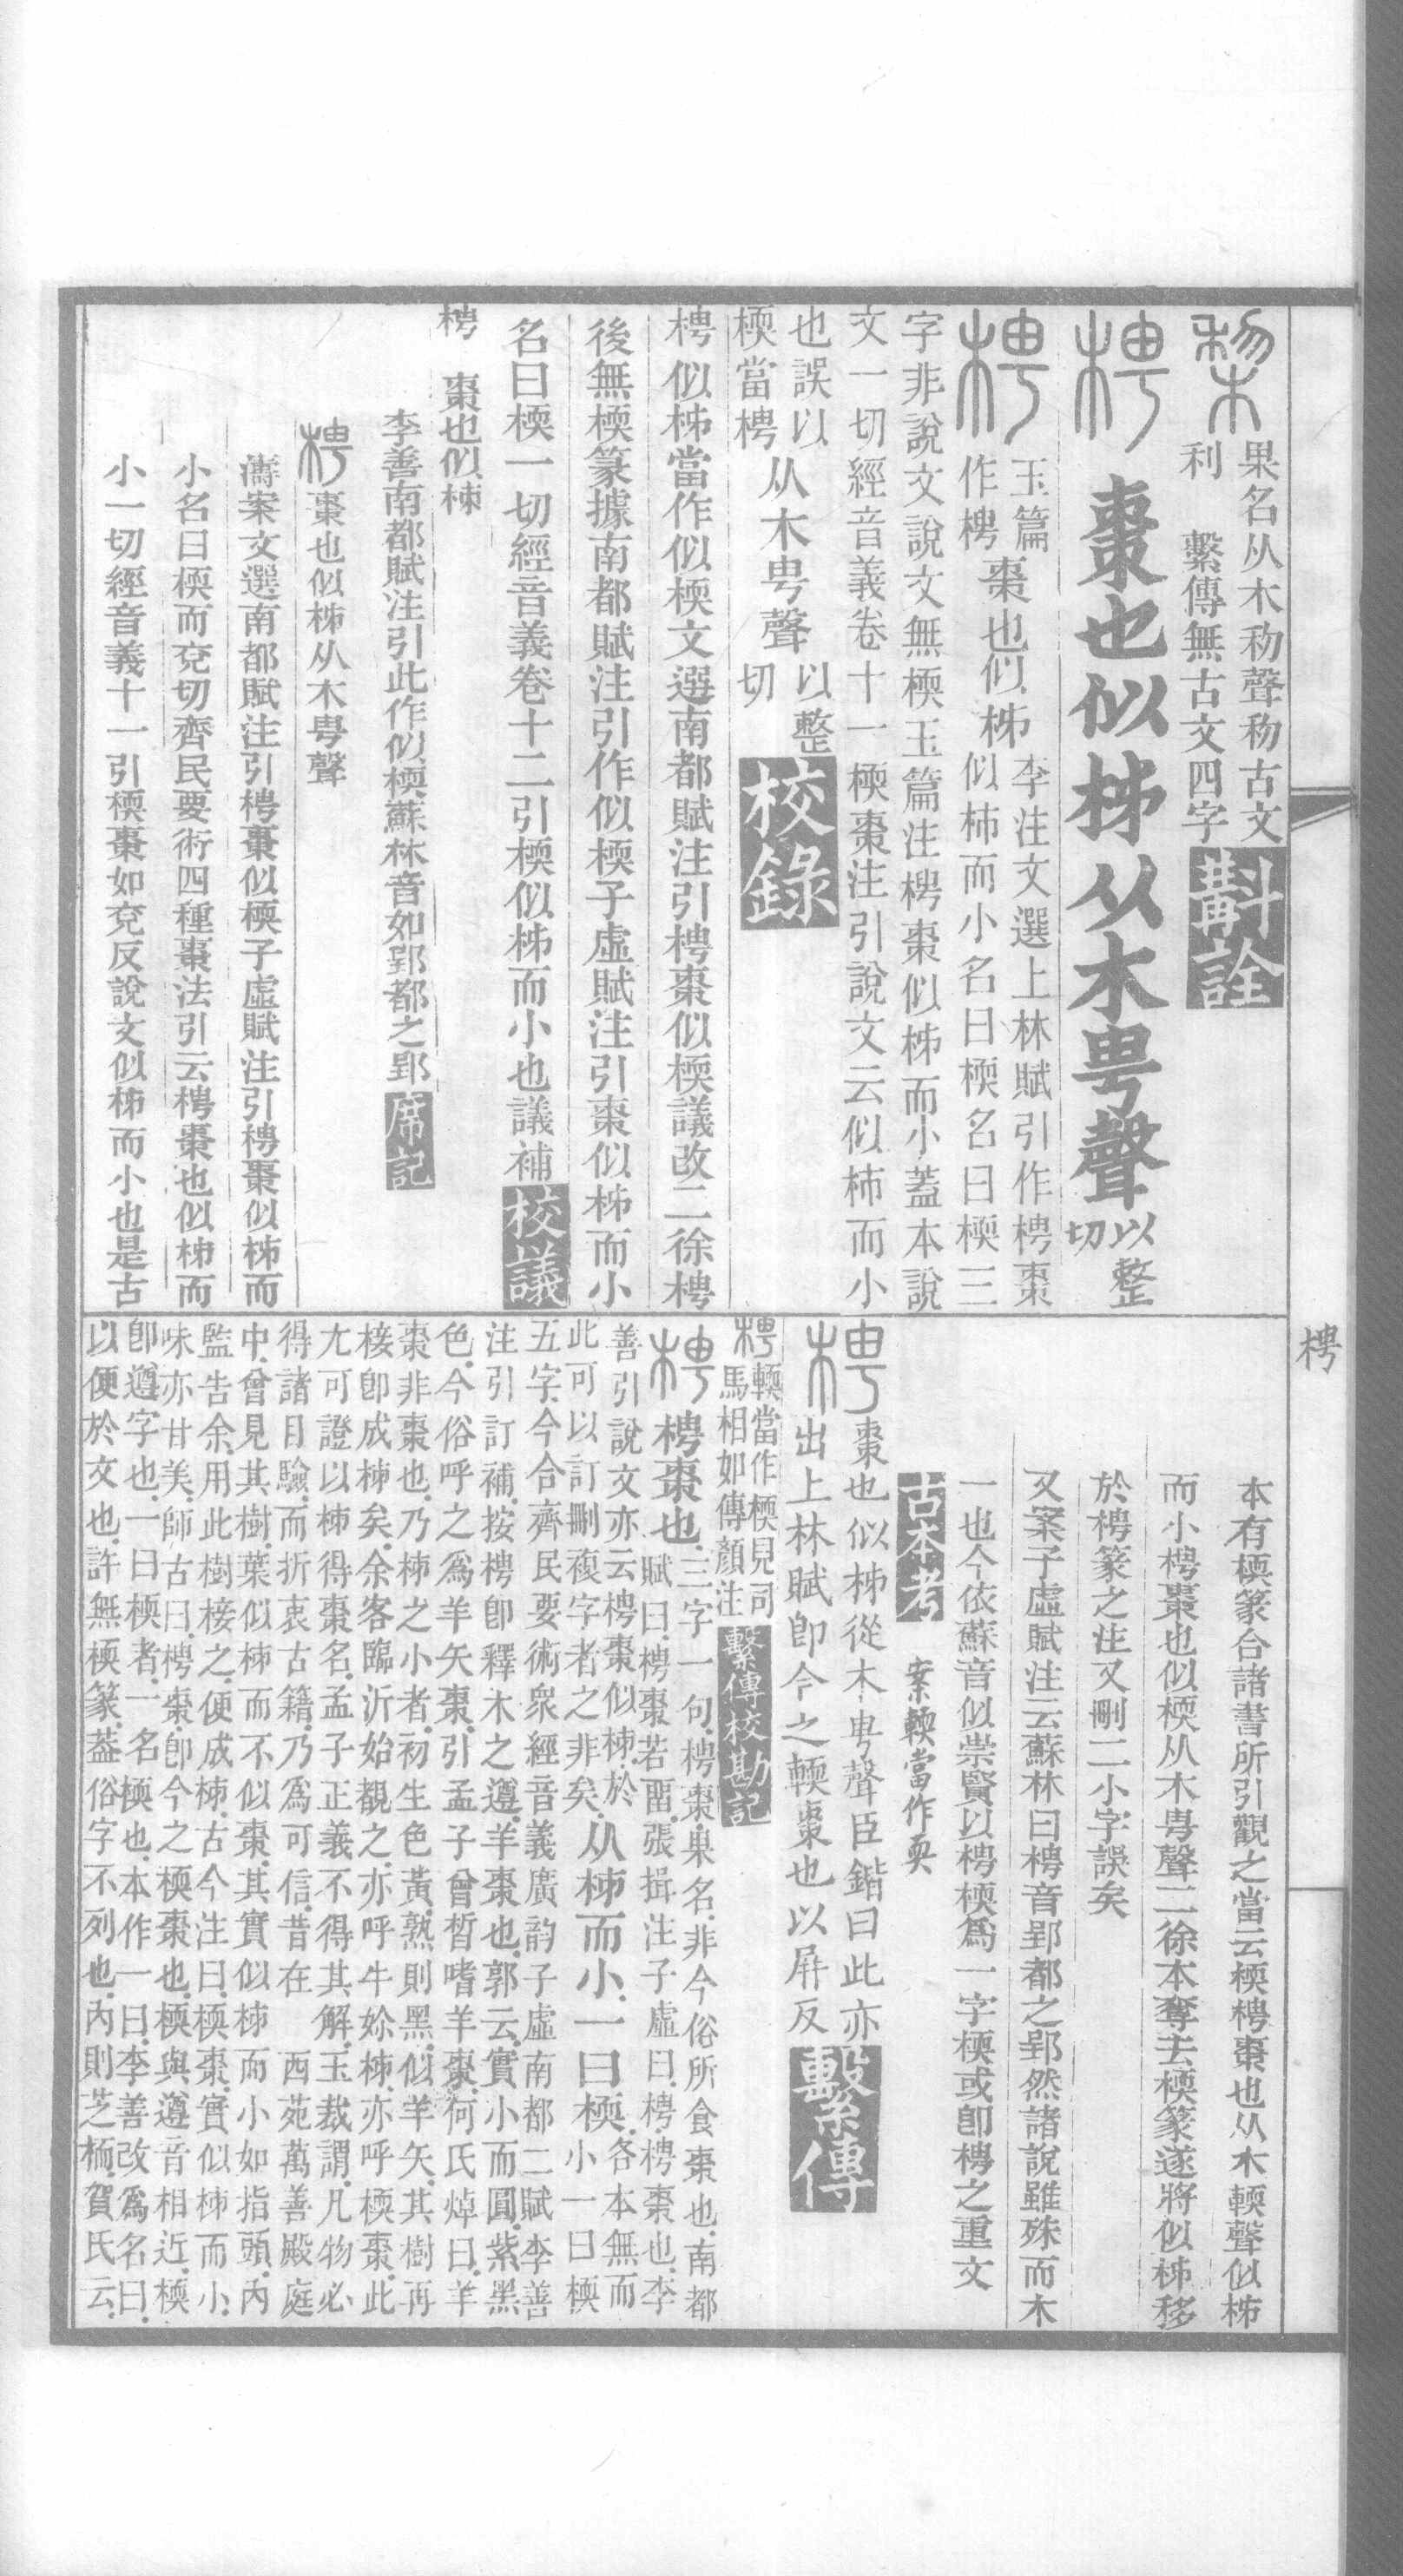 棃 果名从木𥝢聲𥝢古文
利 繫傳無古文四字 斠詮
梬 棗也似柹从木甹聲 以整切
梬 玉篇作梬 棗也似柹 李注文選上林賦引作梬棗
似柿而小名曰㮕名曰㮕三
字非說文說文無㮕玉篇注梬棗似柹而小蓋本說
文一切經音義卷十一㮕棗注引說文云似柿而小
也誤以㮕當梬 从木甹聲 以整切 校錄
梬似柹當作似㮕文選南都賦注引梬棗似㮕議改二徐梬
後無㮕篆據南都賦注引作似㮕子虛賦注引棗似柹而小
名曰㮕一切經音義卷十二引㮕似柹而小也議補 校議
梬 棗也似柹
李善南都賦注引此作似㮕蘇林音如郢都之郢 席記
梬 棗也似柹从木甹聲
濤案文選南都賦注引梬棗似㮕子虛賦注引梬棗似柹而
小名曰㮕而兗切齊民要術四種棗法引云梬棗也似柹而
小一切經音義十一引㮕棗如兗反說文似柹而小也是古
梬
本有㮕篆合諸書所引觀之當云㮕梬棗也从木耎聲似柹
而小梬棗也似㮕从木甹聲二徐本奪去㮕篆遂將似柹移
於梬篆之注又刪二小字誤矣
又案子虛賦注云蘇林曰梬音郢都之郢然諸說雖殊而木
一也今依蘇音似崇賢以梬㮕爲一字㮕或卽梬之重文
古本考 案輭當作耎
梬 棗也似柹從木甹聲臣鍇曰此亦
出上林賦卽今之輭棗也以屏反 繫傳
梬 輭當作㮕見司
馬相如傳顏注 繫傳校勘記
梬 梬棗也 三字一句梬棗果名非今俗所食棗也南都
賦曰梬棗若畱張揖注子虛曰梬梬棗也李
善引說文亦云梬棗似柹於
此可以訂刪複字者之非矣 从柹而小一曰㮕 各本無而
小一曰㮕
五字今合齊民要術衆經音義廣韵子虛南都二賦李善
注引訂補按梬卽釋木之遵羊棗也郭云實小而圓紫黑
色今俗呼之爲羊矢棗引孟子曾晳嗜羊棗何氏焯曰羊
棗非棗也乃柹之小者初生色黃熟則黑似羊矢其樹再
椄卽成柹矣余客臨沂始覩之亦呼牛奶柹亦呼㮕棗此
尢可證以柹得棗名孟子正義不得其解玉裁謂凡物必
得諸目驗而折衷古籍乃爲可信昔在 西苑萬善殿庭
中曾見其樹葉似柹而不似棗其實似柹而小如指頭內
監告余用此樹椄之便成柹古今注曰㮕棗實似柹而小
味亦甘美師古曰梬棗卽今之㮕棗也㮕與遵音相近㮕
卽遵字也一曰㮕者一名㮕也本作一曰李善改爲名曰
以便於文也許無㮕篆蓋俗字不列也內則芝栭賀氏云